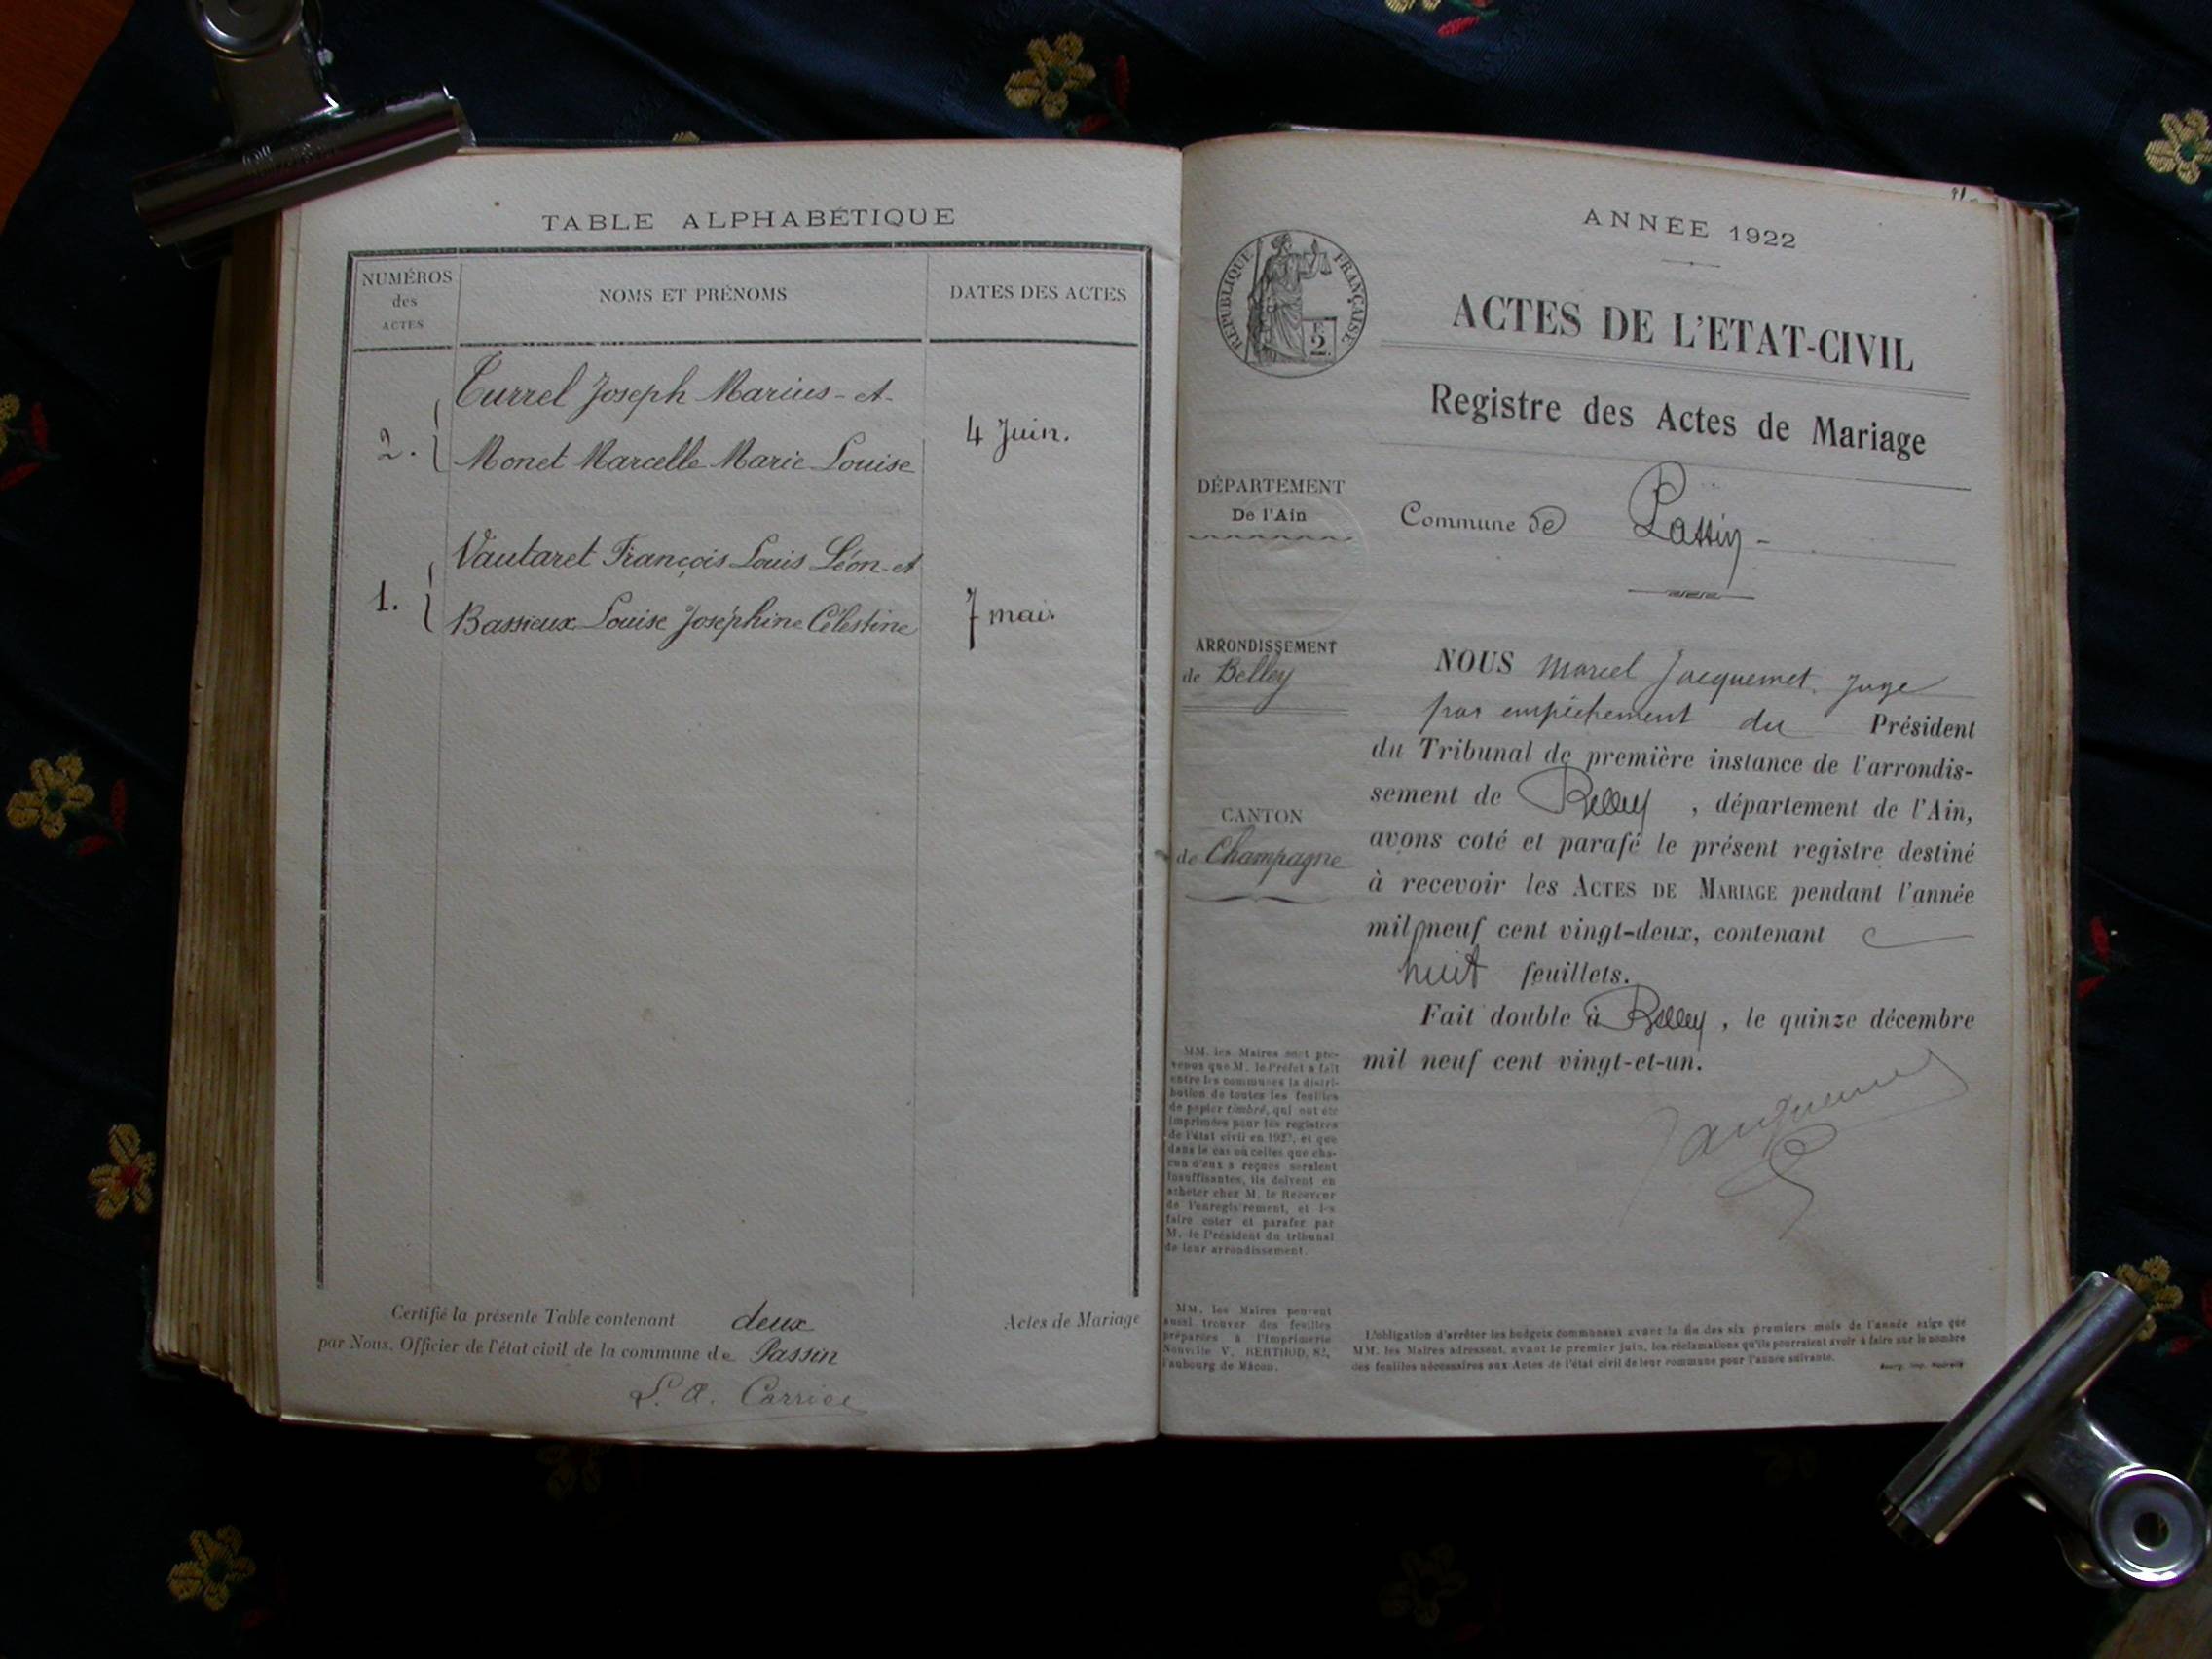 TABLE ALPHABÉTIQUE
NUMÉROS
des
ACTES
NOMS ET PRÉNOMS
DATES DES ACTES
2.
Turrel Joseph Marius - et -
Monet Marcelle Marie Louise
4 Juin.
1.
Vautaret François Louis Léon - et
Bassieux Louise Joséphine Célestine
7 mai.
Certifié la présente Table contenant deux Actes de Mariage
par Nous, Officier de l'état civil de la commune de Passin
ANNÉE 1922
RÉPUBLIQUE FRANÇAISE
2
ACTES DE L'ETAT-CIVIL
Registre des Actes de Mariage
DÉPARTEMENT
De l'Ain
Commune de Passin -
ARRONDISSEMENT
de Belley
CANTON
de Champagne
NOUS Marcel Jacquemet, Juge
par empêchement du Président
du Tribunal de première instance de l'arrondis-
sement de Belley, département de l'Ain,
avons coté et parafé le présent registre destiné
à recevoir les ACTES DE MARIAGE pendant l'année
mil neuf cent vingt-deux, contenant
huit feuillets.
Fait double à Belley, le quinze décembre
mil neuf cent vingt-et-un.
Jacquemet
MM. les Maires sont pré-
venus que M. le Préfet a fait
entre les communes la distri-
bution de toutes les feuilles
de papier timbré, qui ont été
imprimées pour les registres
de l'état civil en 1922, et que
dans le cas où celles que cha-
cun d'eux a reçues seraient
insuffisantes, ils doivent en
acheter chez M. le Receveur
de l'enregistrement, et les
faire coter et parafer par
M. le Président du tribunal
de leur arrondissement.
MM. les Maires peuvent
aussi trouver des feuilles
préparées à l'Imprimerie
Nouvelle V. BERTHOD, 82,
faubourg de Mâcon.
L'obligation d'arrêter les budgets communaux avant la fin des six premiers mois de l'année exige que
MM. les Maires adressent, avant le premier juin, les réclamations qu'ils pourraient avoir à faire sur le nombre
des feuilles nécessaires aux Actes de l'état civil de leur commune pour l'année suivante.
Bourg, Imp. Nouvelle